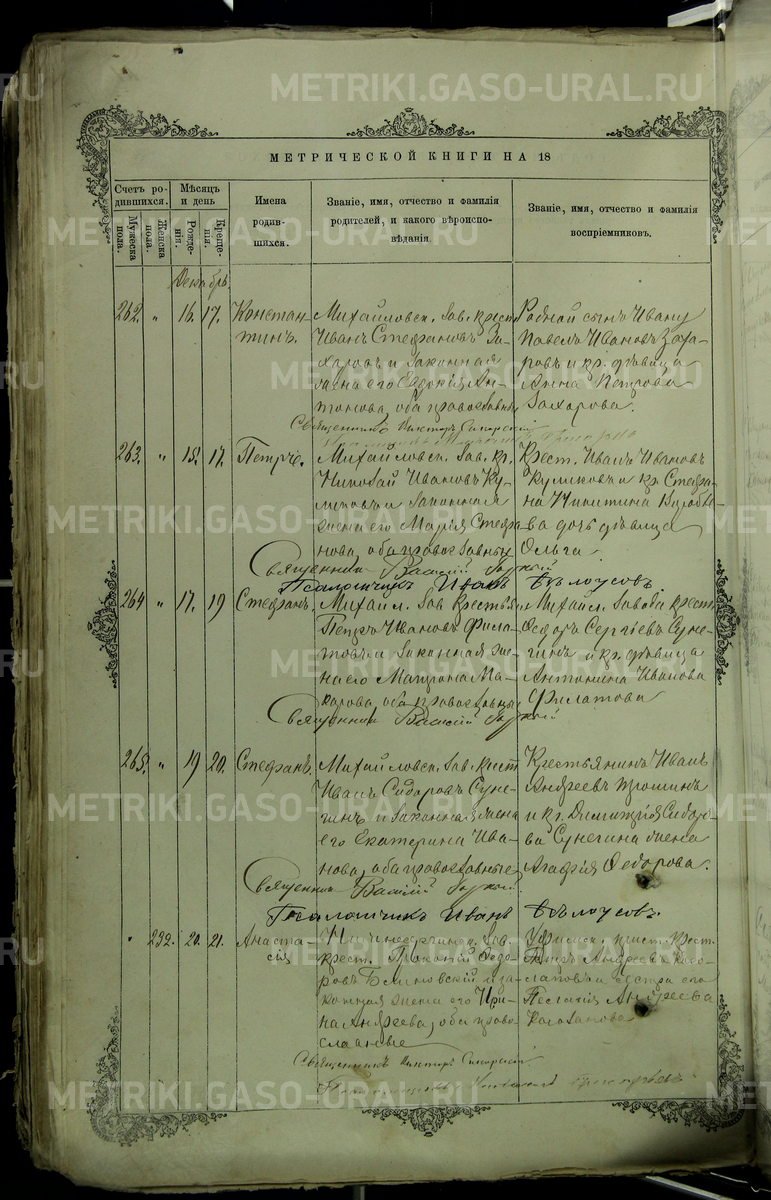 METRIKI.GASO-URAL.RU
МЕТРИЧЕСКОЙ КНИГИ НА 18
Счетъ родившихся.
Мужеска пола.
Женска пола.
Мѣсяцъ и день
Рожденія.
Крещенія.
Имена родившихся.
Званіе, имя, отчество и фамилія родителей, и какого вѣроисповѣданія
Званіе, имя, отчество и фамилія воспріемниковъ.
Декабрь
262. " 16. 17. Константинъ.
Михайловск. Зав. крест.
Иванъ Стефановъ За-
харовъ и законная
жена его Евдокія Ан-
тонова, оба православны
Родной сынъ Ивану
Павелъ Ивановъ Заха-
ровъ и кр. дѣвица
Анна Петрова
Захарова.
Священникъ Викторъ
263. " 15. 17. Петръ.
Михайловск. Зав. кр.
Николай Ивановъ Ку-
ликовъ и законная
жена его Марія Стефа-
нова, оба православны
Крест. Иванъ Ивановъ
Куликовъ и кр. Стефа-
на Никитина
дочь дѣвица
Ольга.
Священникъ Василій
Псаломщикъ Иванъ Бѣлоусовъ.
264 " 17. 19 Стефанъ.
Михайл. Зав. Крестьян.
Петръ Ивановъ Фила-
товъ и законная же-
на его Матрона Ма-
карова, оба православны
Михайл. Завода крест.
Ѳедоръ Сергѣевъ Суне-
гинъ и кр. дѣвица
Антонина Иванова
Филатова
Священникъ Василій
265. " 19 20. Стефанъ.
Михайловск. Зав. крест.
Иванъ Сидоровъ Суне-
гинъ и законная жена
его Екатерина Ива-
нова, оба православные
Крестьянинъ Иванъ
Андреевъ
и кр. Димитрія Сидоро-
ва Сунегина жена
Агафія Ѳедорова.
Священникъ Василій
Псаломщикъ Иванъ Бѣлоусовъ.
" 232. 20. 21. Анаста-
сія
Зав.
крест. Прокопій Ѳедо-
ровъ и за-
конная жена его Ири-
на Андреева, оба право-
славные
крест.
Андреевъ
и сестра его
Пелагія Андреева
Священникъ Викторъ